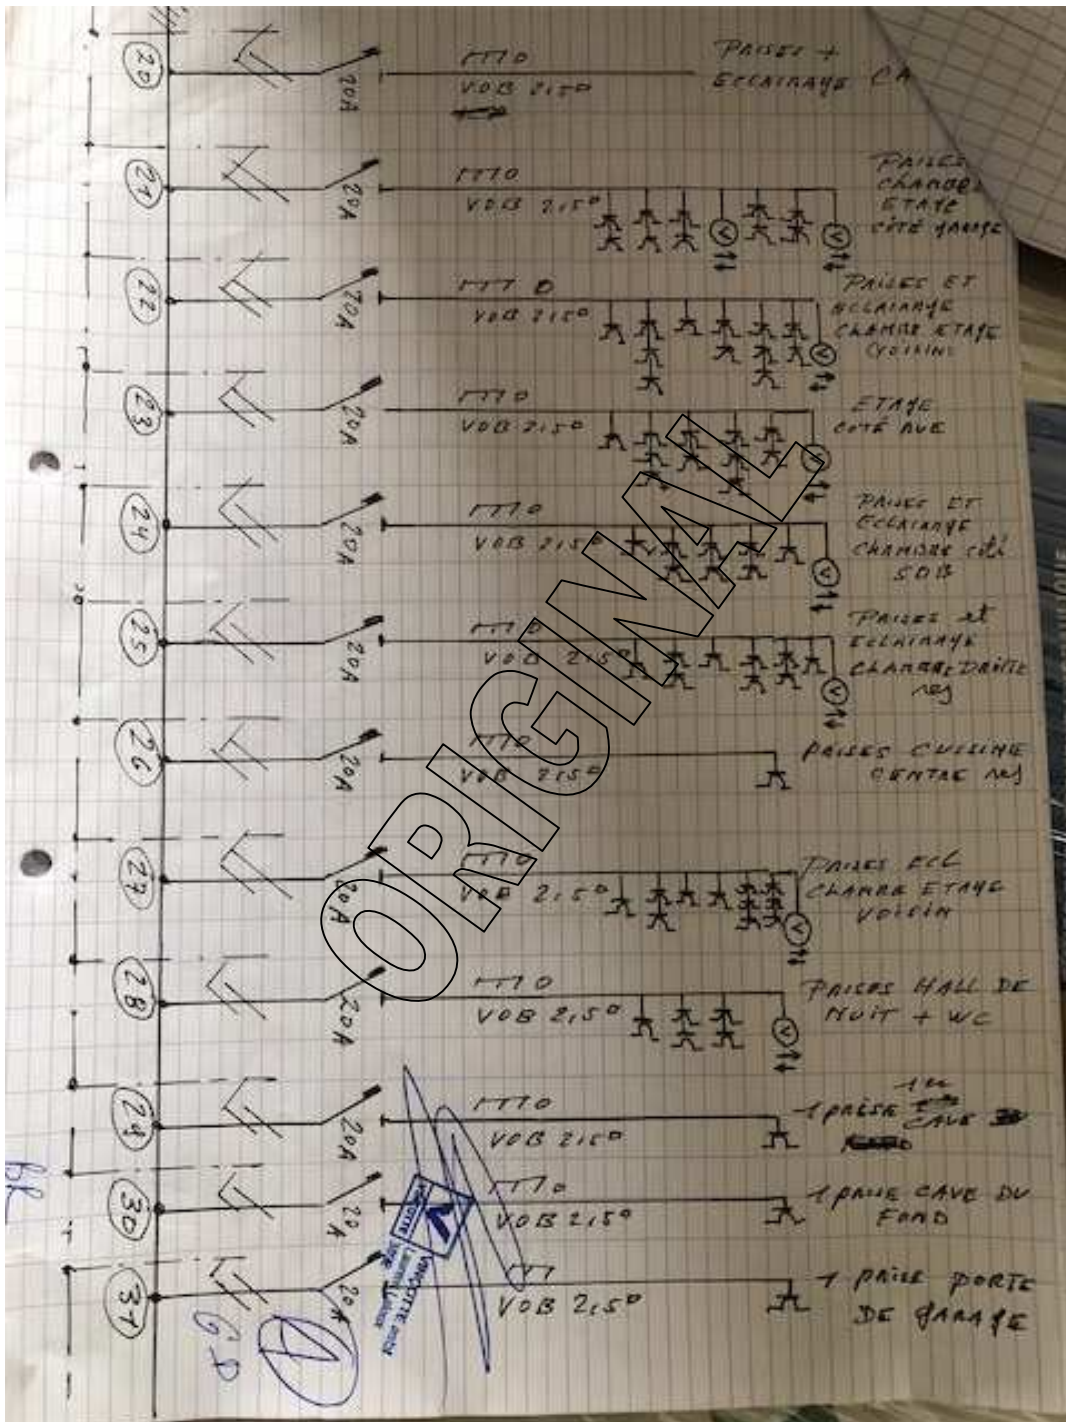 20
20A
VOB 2,5²
PRISES +
ECLAIRAGE CA
21
20A
VOB 2,5²
PRISES
CHAMBRE
ETAGE
CÔTÉ GAUCHE
22
20A
VOB 2,5²
PRISES ET
ECLAIRAGE
CHAMBRE ETAGE
23
20A
VOB 2,5²
ETAGE
COTÉ RUE
24
20A
VOB 2,5²
PRISES ET
ECLAIRAGE
CHAMBRE côté
SDB
25
20A
VOB 2,5²
PRISES et
ECLAIRAGE
CHAMBRE DROITE
rez
26
20A
VOB 2,5²
PRISES CUISINE
CENTRE rez
27
20A
VOB 2,5²
PRISES ECL
CHAMBRE ETAGE
VOISIN
28
20A
VOB 2,5²
PRISES HALL DE
NUIT + WC
29
20A
VOB 2,5²
1 PRISE
CAVE
30
20A
VOB 2,5²
1 PRISE CAVE DU
FOND
31
20A
VOB 2,5²
1 PRISE PORTE
DE GARAGE
VINÇOTTE
ORIGINAL